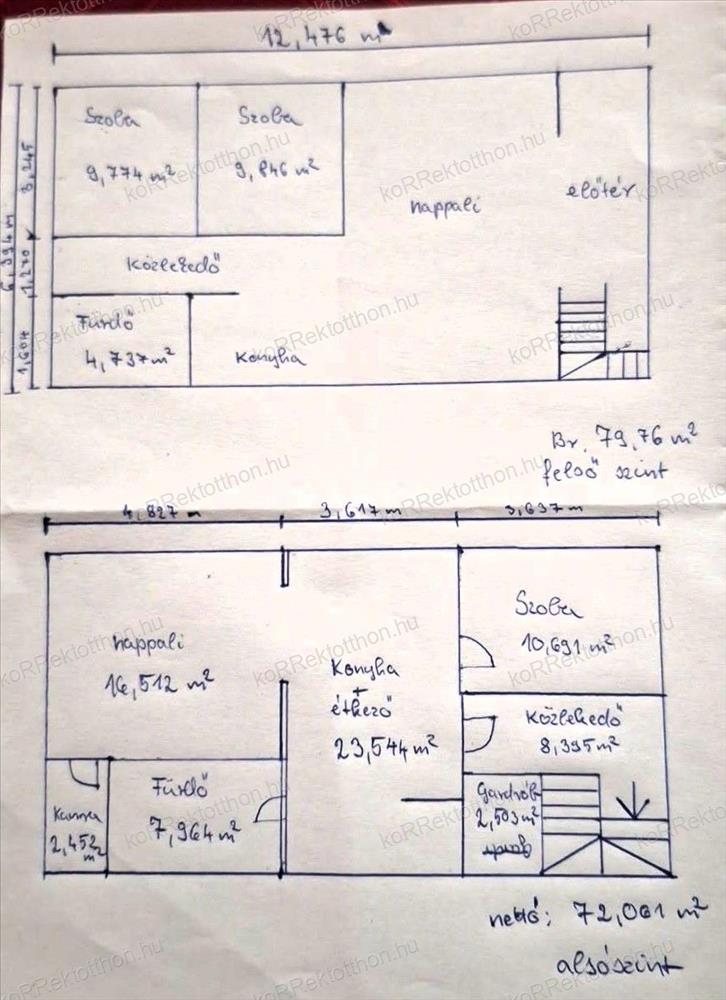 12,476 m
Szoba
Szoba
9,774 m²
9,846 m²
3,245
6,394 m
1,270
1,604
nappali
előtér
Közlekedő
Fürdő
4,737 m²
Konyha
Br. 79,76 m²
felső szint
4,827 m
3,617 m
3,637 m
nappali
16,512 m²
Konyha
+
étkező
23,544 m²
Szoba
10,691 m²
Közlekedő
8,395 m²
Kamra
2,452 m²
Fürdő
7,964 m²
Gardrób
2,503 m²
nettó: 72,061 m²
alsószint
koRRektotthon.hu